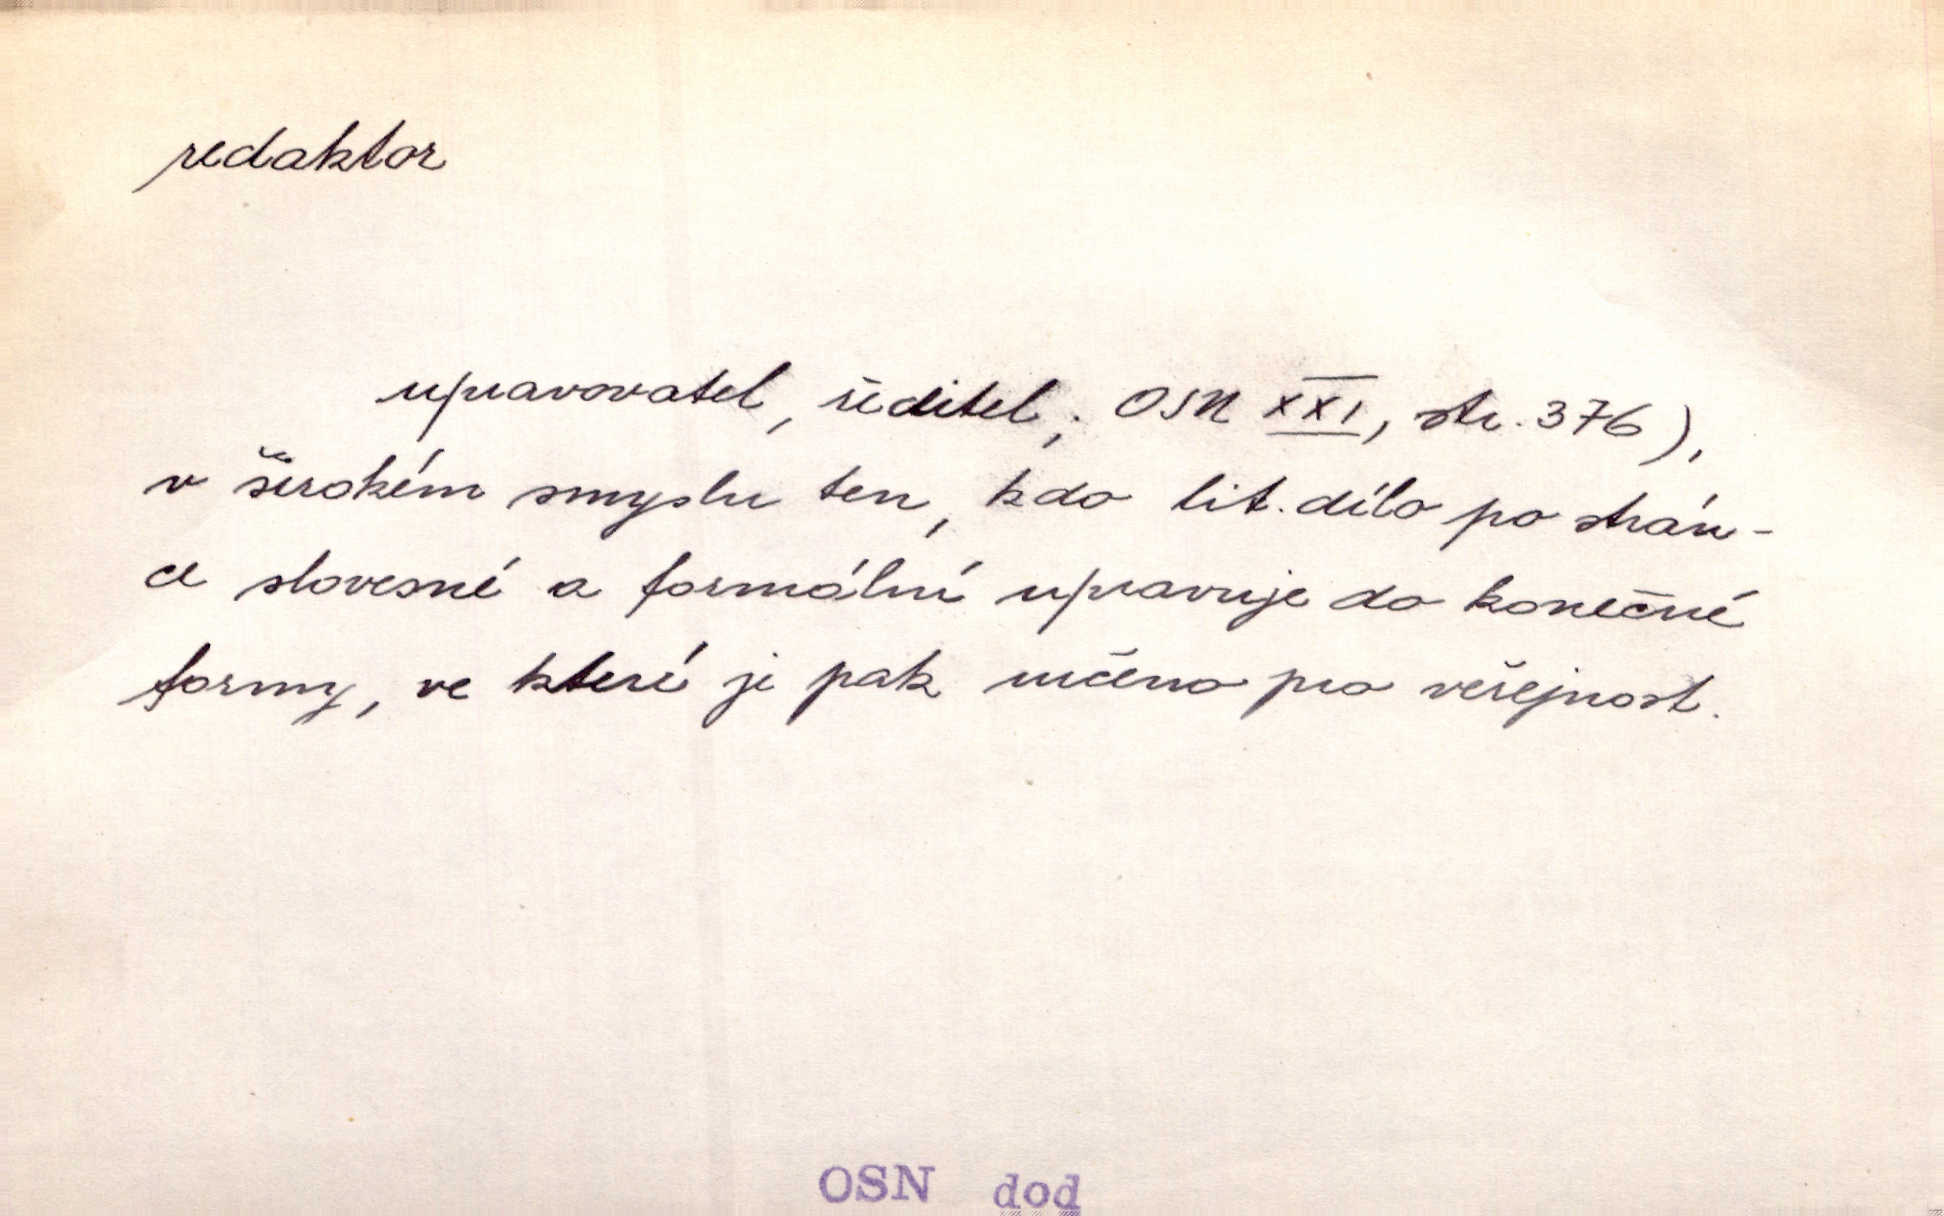 redaktor
upravovatel, ředitel,; OSN XXI, str. 376),
v širokém smyslu ten, kdo lit. dílo po strán-
ce slovesné a formální upravuje do konečné
formy, ve které je pak určeno pro veřejnost.
OSN dod